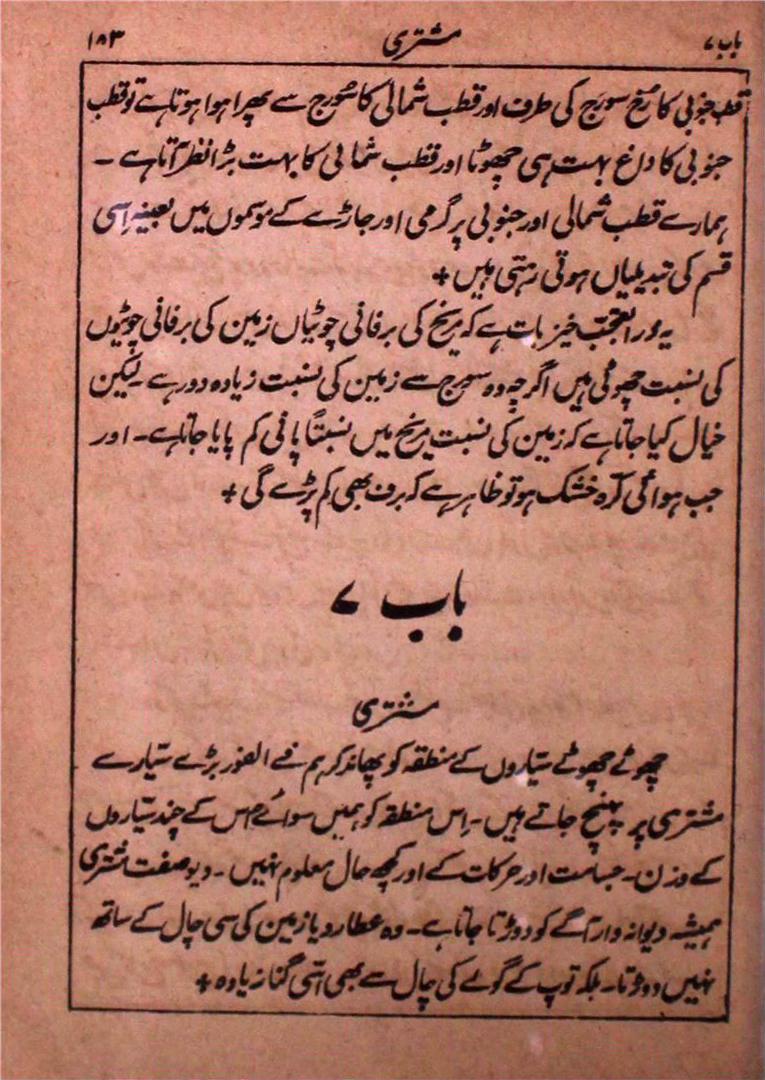 باب ۷ مشتری ۱۸۳
قطب جنوبی کا رُخ سورج کی طرف اور قطب شمالی کا سورج سے پھرا ہوا ہوتا ہے تو قطب
جنوبی کا داغ بہت ہی چھوٹا اور قطب شمالی کا بہت بڑا نظر آتا ہے ۔
ہمارے قطب شمالی اور جنوبی پر گرمی اور جاڑے کے موسموں میں بعینہٖ اِسی
قسم کی تبدیلیاں ہوتی رہتی ہیں +
یہ ذرا تعجب خیز بات ہے کہ مریخ کی برفانی چوٹیاں زمین کی برفانی چوٹیوں
کی نسبت چھوٹی ہیں اگرچہ وہ سورج سے زمین کی نسبت زیادہ دور ہے ۔ لیکن
خیال کیا جاتا ہے کہ زمین کی نسبت مریخ میں نسبتاً پانی کم پایا جاتا ہے ۔ اور
جب ہوائی کُرہ خشک ہو تو ظاہر ہے کہ برف بھی کم پڑے گی +
باب ۷
مشتری
چھوٹے چھوٹے سیّاروں کے منطقہ کو پھاند کر ہم فے الفور بڑے سیّارے
مشتری پر پہنچ جاتے ہیں ۔ اِس منطقہ کو ہمیں سوائے اس کے چند سیّاروں
کے وزن ۔ جسامت اور حرکات کے اور کچھ حال معلوم نہیں ۔ دیو صفت مشتری
ہمیشہ دیوانہ وار آگے کو دوڑتا جاتا ہے ۔ وہ عطارد یا زمین کی سی چال کے ساتھ
نہیں دوڑتا ۔ بلکہ توپ کے گولے کی چال سے بھی اسّی گنا زیادہ +